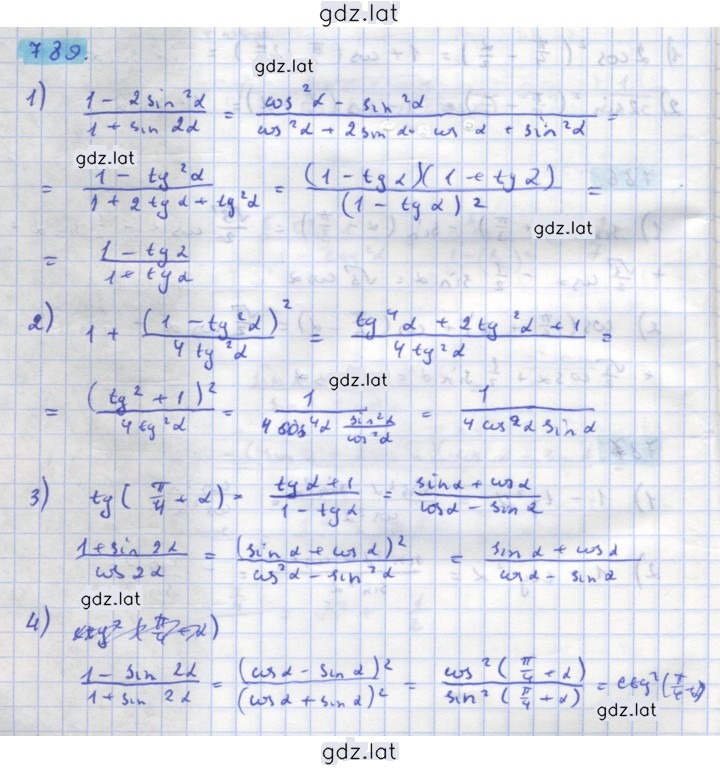 gdz.lat
789.
gdz.lat
1) (1 - 2 sin²α)/(1 + sin 2α) = (cos²α - sin²α)/(cos²α + 2 sin α · cos α + sin²α) =
gdz.lat
= (1 - tg²α)/(1 + 2 tg α + tg²α) = ((1 - tg α)(1 + tg α))/((1 - tg α)²) =
gdz.lat
= (1 - tg α)/(1 + tg α)
2) 1 + (1 - tg²α)²/(4 tg²α) = (tg⁴α + 2 tg²α + 1)/(4 tg²α) =
gdz.lat
= (tg² + 1)²/(4 tg²α) = 1/(4 cos⁴α (sin²α/cos²α)) = 1/(4 cos²α sin α)
3) tg(π/4 + α) = (tg α + 1)/(1 - tg α) = (sin α + cos α)/(cos α - sin α)
(1 + sin 2α)/(cos 2α) = (sin α + cos α)²/(cos²α - sin²α) = (sin α + cos α)/(cos α - sin α)
gdz.lat
4)
(1 - sin 2α)/(1 + sin 2α) = (cos α - sin α)²/(cos α + sin α)² = cos²(π/4 + α)/sin²(π/4 + α) = ctg²(π/4 + α)
gdz.lat
gdz.lat